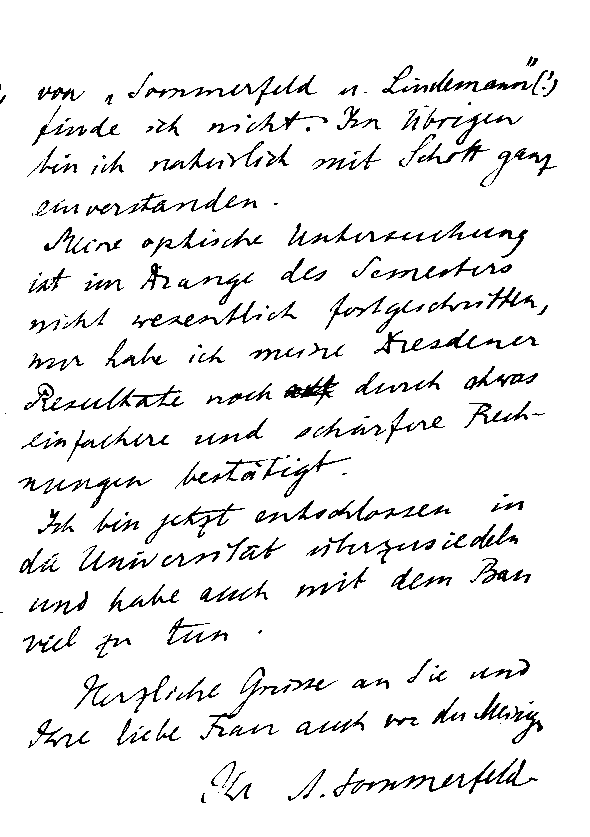 von „Sommerfeld u. Lindemann“(!)
finde ich nicht. Im Übrigen
bin ich natürlich mit Schott ganz
einverstanden.
Meine optische Untersuchung
ist im Drange des Semesters
nicht wesentlich fortgeschritten,
nur habe ich meine Dresdener
Resultate noch durch etwas
einfachere und schärfere Rech-
nungen bestätigt.
Ich bin jetzt entschlossen in
die Universität überzusiedeln
und habe auch mit dem Bau
viel zu tun.
Herzliche Grüsse an Sie und
Ihre liebe Frau auch von der Meinigen
Ihr A. Sommerfeld.